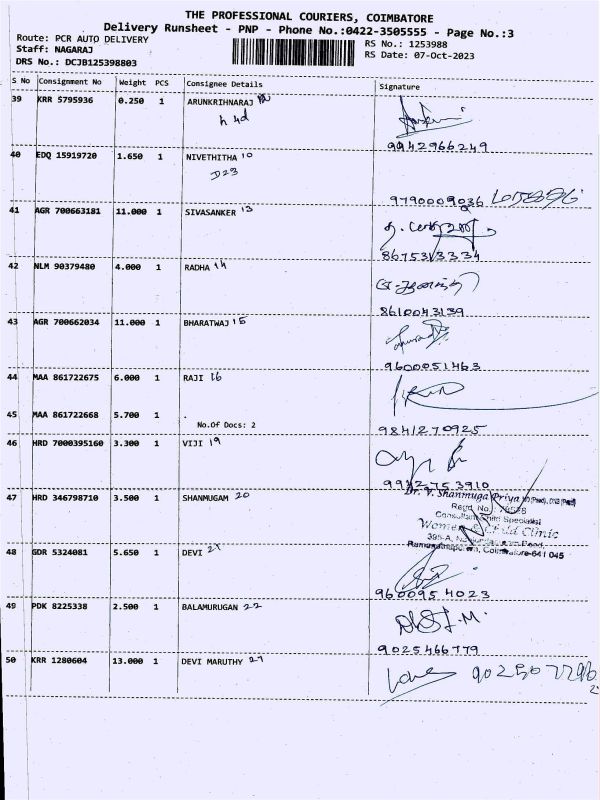 THE PROFESSIONAL COURIERS, COIMBATORE
Delivery Runsheet - PNP - Phone No.:0422-3505555 - Page No.:3
Route: PCR AUTO DELIVERY
RS No.: 1253988
Staff: NAGARAJ
RS Date: 07-Oct-2023
DRS No.: DCJB125398803
S No Consignment No Weight PCS Consignee Details Signature
39 KRR 5795936 0.250 1 ARUNKRIHNARAJ
9942966249
40 EDQ 15919720 1.650 1 NIVETHITHA 10
D23
9790009036
41 AGR 700663181 11.000 1 SIVASANKER 13
8675313334
42 NLM 90379480 4.000 1 RADHA 14
8610043139
43 AGR 700662034 11.000 1 BHARATWAJ 15
9600051463
44 MAA 861722675 6.000 1 RAJI 16
45 MAA 861722668 5.700 1 .
No.Of Docs: 2
9841270925
46 HRD 7000395160 3.300 1 VIJI 19
9942753910
47 HRD 346798710 3.500 1 SHANMUGAM 20
Dr. V. Shanmuga Priya
Regd. No.
Consultant Child Specialist
Women & Child Clinic
395-A,
Coimbatore-641 045
48 GDR 5324081 5.650 1 DEVI 21
9600954023
49 PDK 8225338 2.500 1 BALAMURUGAN 22
9025466779
50 KRR 1280604 13.000 1 DEVI MARUTHY 27